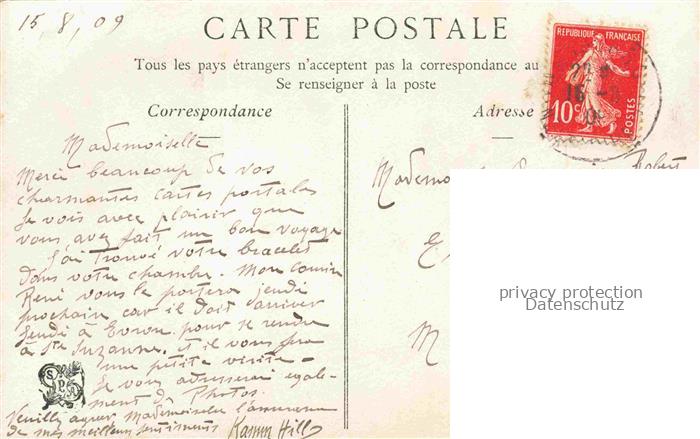 15, 8, 09
CARTE POSTALE
Tous les pays étrangers n'acceptent pas la correspondance au
Se renseigner à la poste
REPUBLIQUE FRANÇAISE
10c
POSTES
Correspondance
Adresse
Mademoiselle
Merci beaucoup de vos
charmantes cartes postales
Je vois avec plaisir que
vous avez fait un bon voyage
J'ai trouvé votre bracelet
dans votre chambre. Mon cousin
René vous le portera jeudi
prochain car il doit arriver
jeudi à Evron pour se rendre
à Ste Suzanne, et il vous fera
une petite visite -
Je vous adresserai égale-
ment des Photos.
Veuillez agréer Mademoiselle l'assurance
de mes meilleurs sentiments
Robert
E
M
privacy protection
Datenschutz